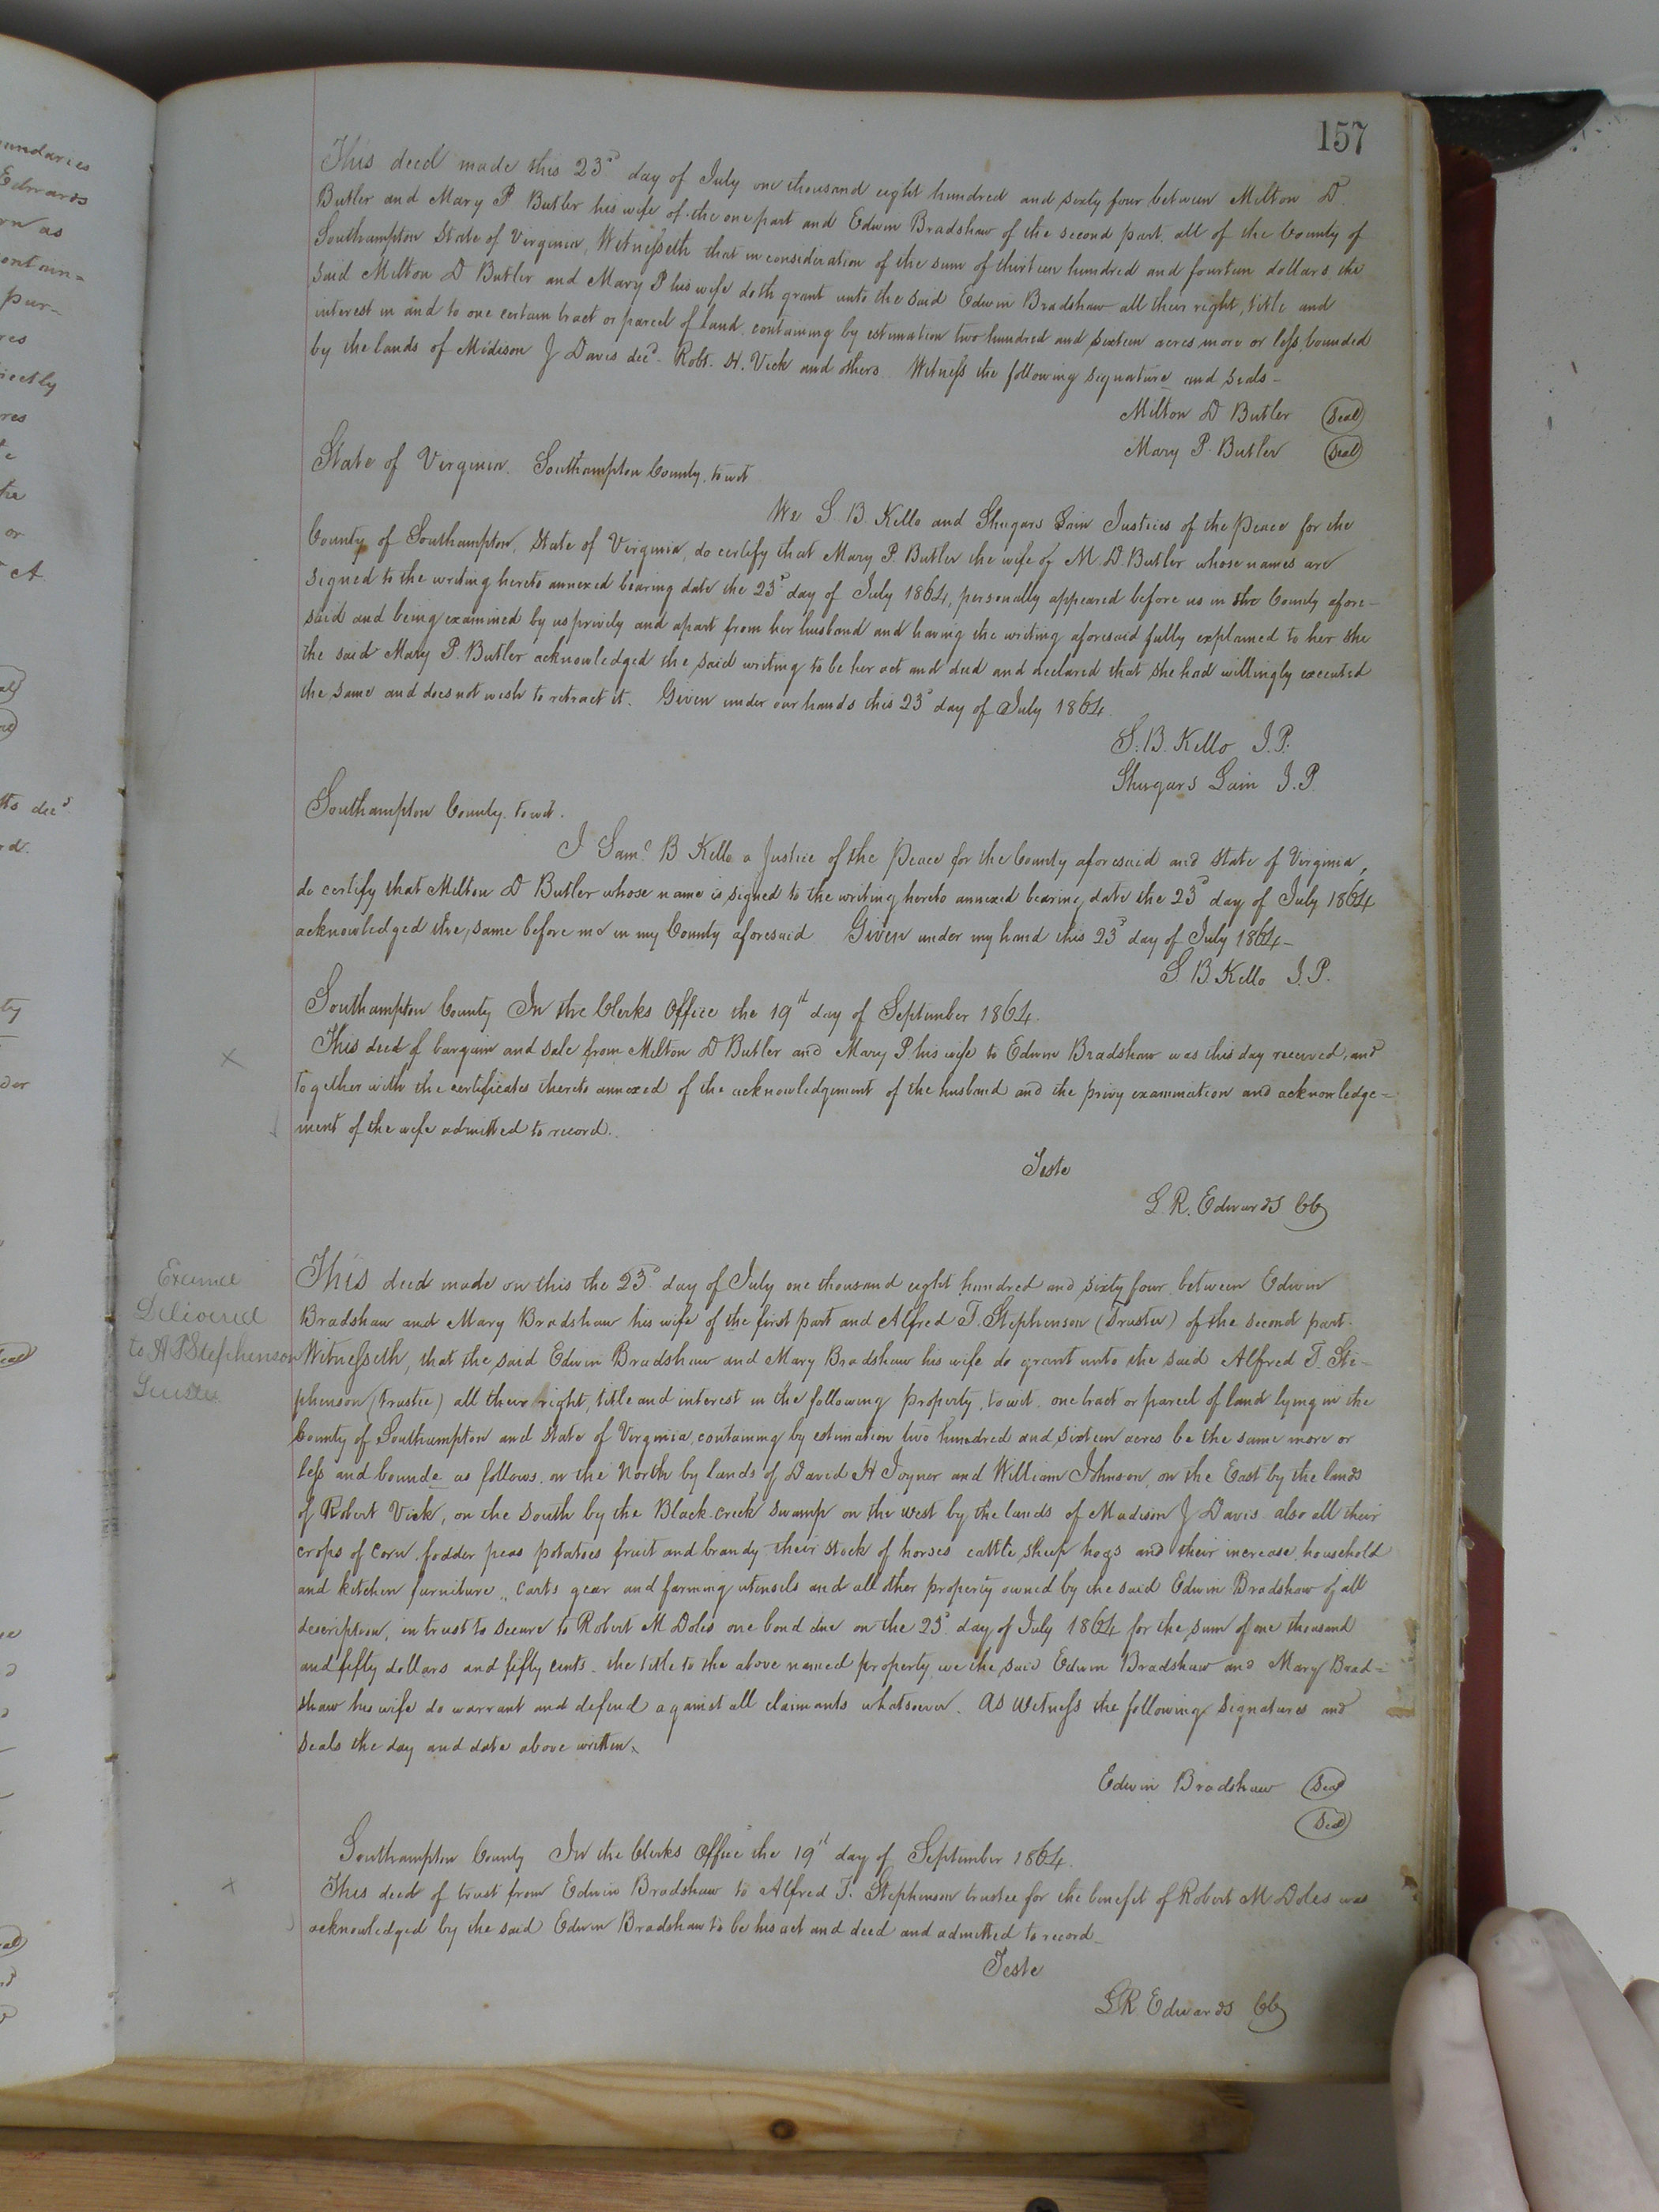 157
This deed made this 23d day of July one thousand eight hundred and sixty four between Milton D.
Butler and Mary P Butler his wife of the one part and Edwin Bradshaw of the second part, all of the County of
Southampton State of Virginia, Witnesseth that in consideration of the sum of thirteen hundred and fourteen dollars the
said Milton D Butler and Mary P his wife doth grant unto the said Edwin Bradshaw all their right, title and
interest in and to one certain tract or parcel of land, containing by estimation two hundred and sixteen acres more or less, bounded
by the lands of Midison J Davis decd. Robt. H. Vick and others. Witness the following signature and seals-
Milton D Butler (Seal)
Mary P. Butler (Seal)
State of Virginia. Southampton County, to wit
We S. B. Kello and Shugars Lain Justices of the Peace for the
County of Southampton, State of Virginia, do certify that Mary P. Butler the wife of M. D. Butler whose names are
signed to the writing hereto annexed bearing date the 23d day of July 1864, personally appeared before us in the County afore-
said and being examined by us privily and apart from her husband and having the writing aforesaid fully explained to her she
the said Mary P. Butler acknowledged the said writing to be her act and deed and declared that she had willingly executed
the same and does not wish to retract it. Given under our hands this 23d day of July 1864.
S. B. Kello J.P.
Shugars Lain J.P.
Southampton County. to wit.
I Saml. B. Kello a Justice of the Peace for the County aforesaid and State of Virginia,
do certify that Milton D Butler whose name is signed to the writing hereto annexed bearing date the 23d day of July 1864
acknowledged the same before me in my County aforesaid Given under my hand this 23d day of July 1864-
S B Kello J.P.
Southampton County In the Clerks Office the 19th day of September 1864.
This deed of bargain and sale from Milton D Butler and Mary P his wife to Edwin Bradshaw was this day received, and
together with the certificates thereto annexed of the acknowledgement of the husband and the privy examination and acknowledge=
ment of the wife admitted to record.
Teste
L. R. Edwards CC
Delivered
to A T Stephenson
This deed made on this the 23d day of July one thousand eight hundred and sixty four, between Edwin
Bradshaw and Mary Bradshaw his wife of the first part and Alfred T. Stephenson (Trustee) of the second part.
Witnesseth, that the said Edwin Bradshaw and Mary Bradshaw his wife do grant unto the said Alfred T. Ste-
phenson (trustee) all their right, title and interest in the following property, to wit. one tract or parcel of land lying in the
County of Southampton and State of Virginia, containing by estimation two hundred and sixteen acres be the same more or
less and bounde as follows. on the North by lands of David H Joyner and William Johnson, on the East by the lands
of Robert Vick, on the South by the Black creek swamp on the west by the lands of Madison J Davis also all their
crops of corn, fodder peas potatoes fruit and brandy their stock of horses cattle, sheep hogs and their increase, household
and kitchen furniture,, carts gear and farming utensils and all other property owned by the said Edwin Bradshaw of all
description, in trust to secure to Robert M Doles one bond due on the 23d day of July 1864 for the sum of one thousand
and fifty dollars and fifty cents. the title to the above named property we the said Edwin Bradshaw and Mary Brad=
shaw his wife do warrant and defend against all claimants whatsoever. As Witness the following signatures and
seals the day and date above written.
Edwin Bradshaw (Seal)
(Seal)
Southampton County In the Clerks Office the 19th day of September 1864.
This deed of trust from Edwin Bradshaw to Alfred T. Stephenson trustee for the benefit of Robert M Doles was
acknowledged by the said Edwin Bradshaw to be his act and deed and admitted to record-
Teste
L R Edwards CC